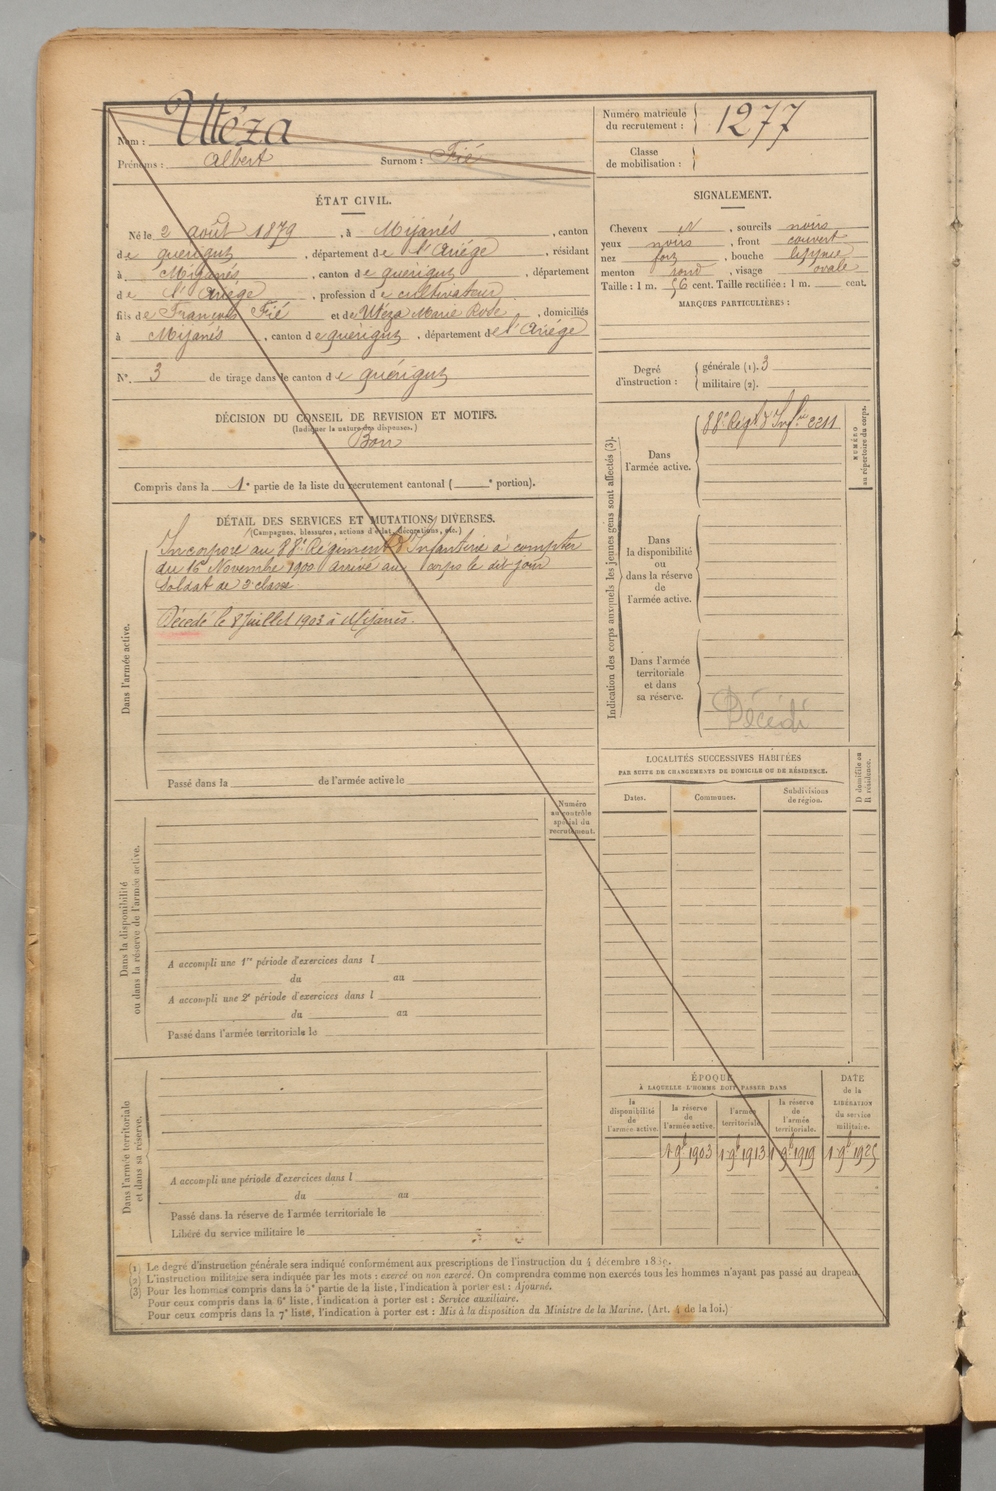 Nom : Utéza
Prénoms : Albert Surnom : Fié
Numéro matricule
du recrutement : 1277
Classe
de mobilisation :
ÉTAT CIVIL.
Né le 2 août 1879, à Mijanés, canton
de quérigut, département de l'Ariége, résidant
à Mijanés, canton de quérigut, département
de l'Ariége, profession de cultivateur
fils de François Fié et de Utéza Marie Rose, domiciliés
à Mijanés, canton de quérigut, département de l'Ariége
N° 3 de tirage dans le canton de quérigut
SIGNALEMENT.
Cheveux et, sourcils noirs
yeux noirs, front couvert
nez fort, bouche
menton rond, visage ovale
Taille : 1 m. 56 cent. Taille rectifiée : 1 m. cent.
MARQUES PARTICULIÈRES :
Degré
d'instruction :
générale (1). 3
militaire (2).
DÉCISION DU CONSEIL DE REVISION ET MOTIFS.
(Indiquer la nature des dispenses.)
Bon
Compris dans la 1e partie de la liste du recrutement cantonal ( e portion).
DÉTAIL DES SERVICES ET MUTATIONS DIVERSES.
(Campagnes, blessures, actions d'éclat, décorations, etc.)
Dans l'armée active.
Incorporé au 88e Régiment d'Infanterie à compter
du 16 Novembre 1900 arrivé au corps le dit jour
soldat de 2e classe
Décédé le 8 Juillet 1903 à Mijanès.
Passé dans la de l'armée active le
Indication des corps auxquels les jeunes gens sont affectés (3).
NUMÉRO
au répertoire du corps.
Dans
l'armée active.
88e Régt d'Infrie 2211
Dans
la disponibilité
ou
dans la réserve
de
l'armée active.
Dans l'armée
territoriale
et dans
sa réserve.
Décédé
LOCALITÉS SUCCESSIVES HABITÉES
PAR SUITE DE CHANGEMENTS DE DOMICILE OU DE RÉSIDENCE.
D domicile ou
R résidence.
Dates. Communes. Subdivisions
de région.
Numéro
au contrôle
spécial du
recrutement.
Dans la disponibilité
ou dans la réserve de l'armée active.
A accompli une 1re période d'exercices dans l
du au
A accompli une 2e période d'exercices dans l
du au
Passé dans l'armée territoriale le
Dans l'armée territoriale
et dans sa réserve.
A accompli une période d'exercices dans l
du au
Passé dans la réserve de l'armée territoriale le
Libéré du service militaire le
ÉPOQUE
À LAQUELLE L'HOMME DOIT PASSER DANS
la
disponibilité
de
l'armée active.
la réserve
de
l'armée active.
l'armée
territoriale.
la réserve
de
l'armée
territoriale.
DATE
de la
LIBÉRATION
du service
militaire.
1 9b 1903 1 9b 1913 1 9b 1919 1 9b 1925
(1) Le degré d'instruction générale sera indiqué conformément aux prescriptions de l'instruction du 4 décembre 1889.
(2) L'instruction militaire sera indiquée par les mots : exercé ou non exercé. On comprendra comme non exercés tous les hommes n'ayant pas passé au drapeau.
(3) Pour les hommes compris dans la 5e partie de la liste, l'indication à porter est : Ajourné.
Pour ceux compris dans la 6e liste, l'indication à porter est : Service auxiliaire.
Pour ceux compris dans la 7e liste, l'indication à porter est : Mis à la disposition du Ministre de la Marine. (Art. 4 de la loi.)